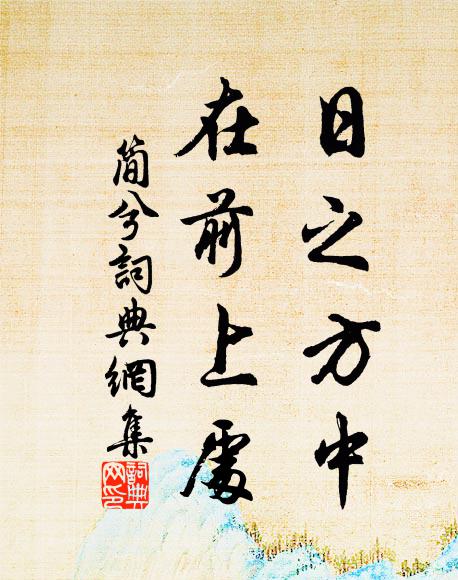 日之方中
在前上處
簡兮詞典網集
詞典網印